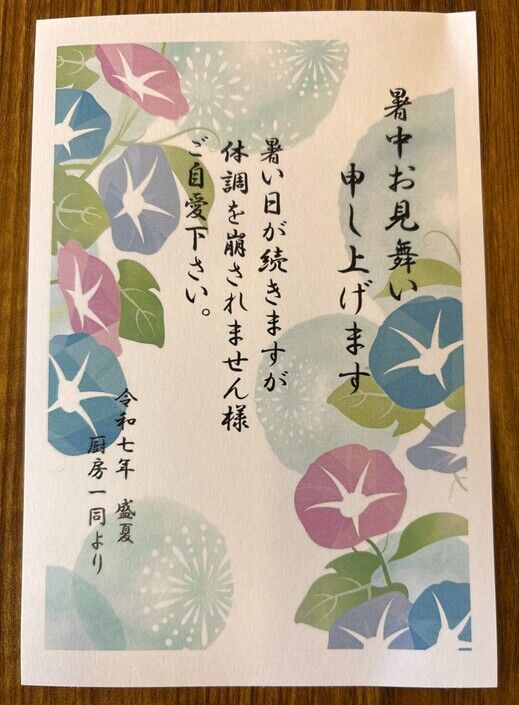 暑中お見舞い
申し上げます
暑い日が続きますが
体調を崩されません様
ご自愛下さい。
令和七年 盛夏
厨房一同より